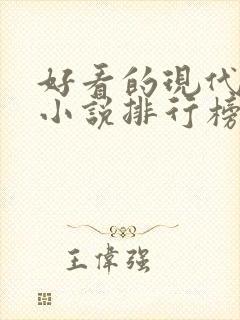 好看的現代
小說排行榜
王偉強